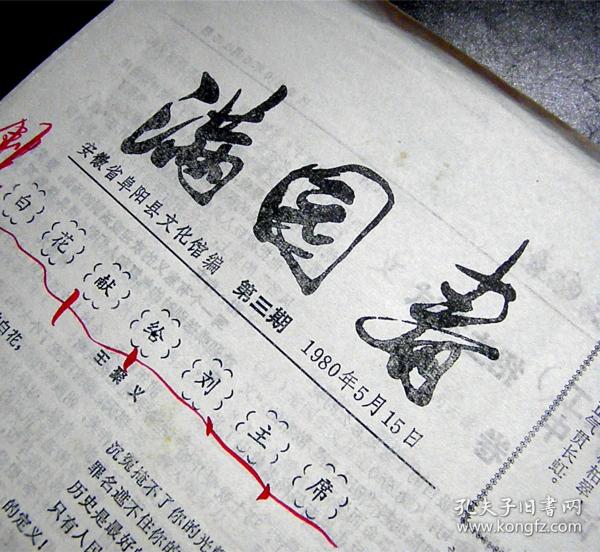 满园春
安徽省阜阳县文化馆编 第三期 1980年5月15日
白花献给刘主席
王聚义
白花,
沉冤掩不了你的光
罪名遮不住你的
历史是最好
只有人民
的定义!
气贯长虹。
孔夫子旧书网
www.kongfz.com